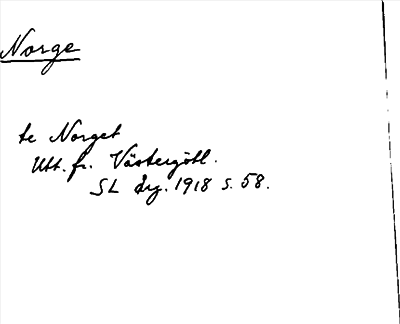 Norge
te Norget
Utt. fr. Västergötl.
SL årg. 1918 s. 58.